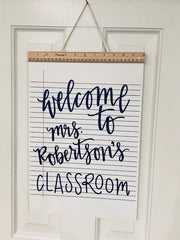 welcome
to
mrs.
Robertson's
CLASSROOM